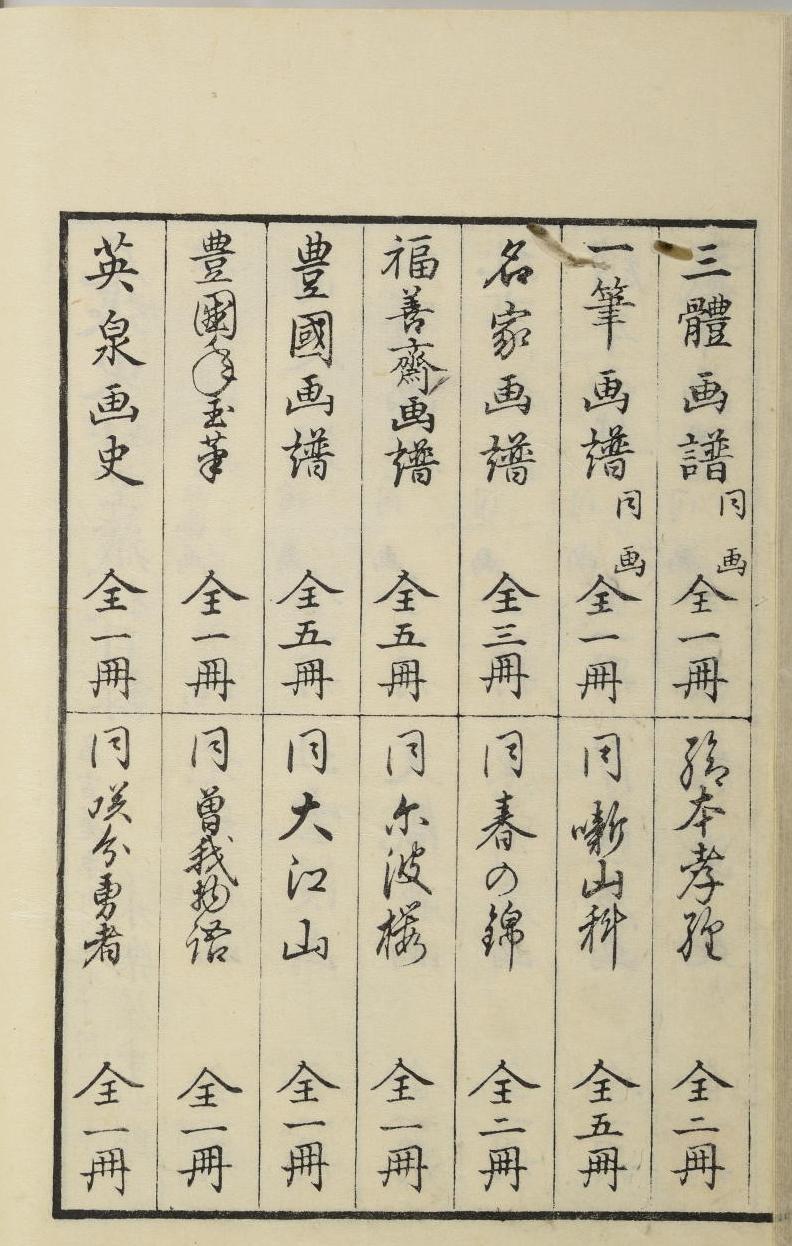 三體画譜 同画 全一冊
一筆画譜 同画 全一冊
名家画譜 全三冊
福善齋画譜 全五冊
豊國画譜 全五冊
豊國年玉筆 全一冊
英泉画史 全一冊
繪本孝經 全二冊
同 噺山科 全五冊
同 春の錦 全二冊
同 尓波櫻 全一冊
同 大江山 全一冊
同 曽我物語 全一冊
同 咲分勇者 全一冊